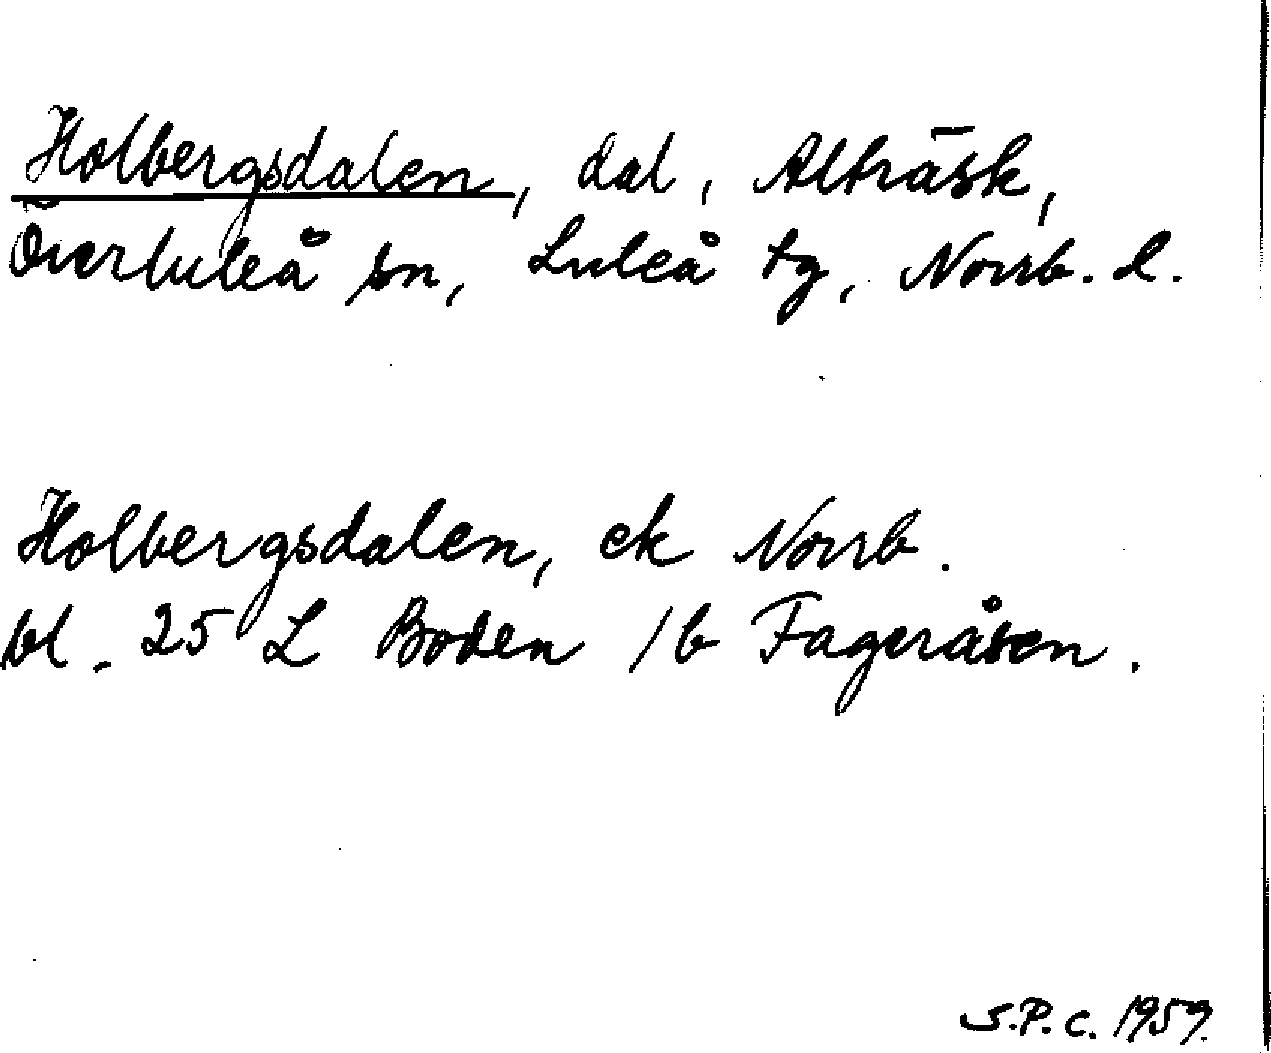 Holbergsdalen, dal, Alträsk,
Överluleå sn, Luleå tg, Norrb. l.
Holbergsdalen, ek Norrb.
bl. 25 L Boden /b Fageråsen.
S.P.C. 1959.